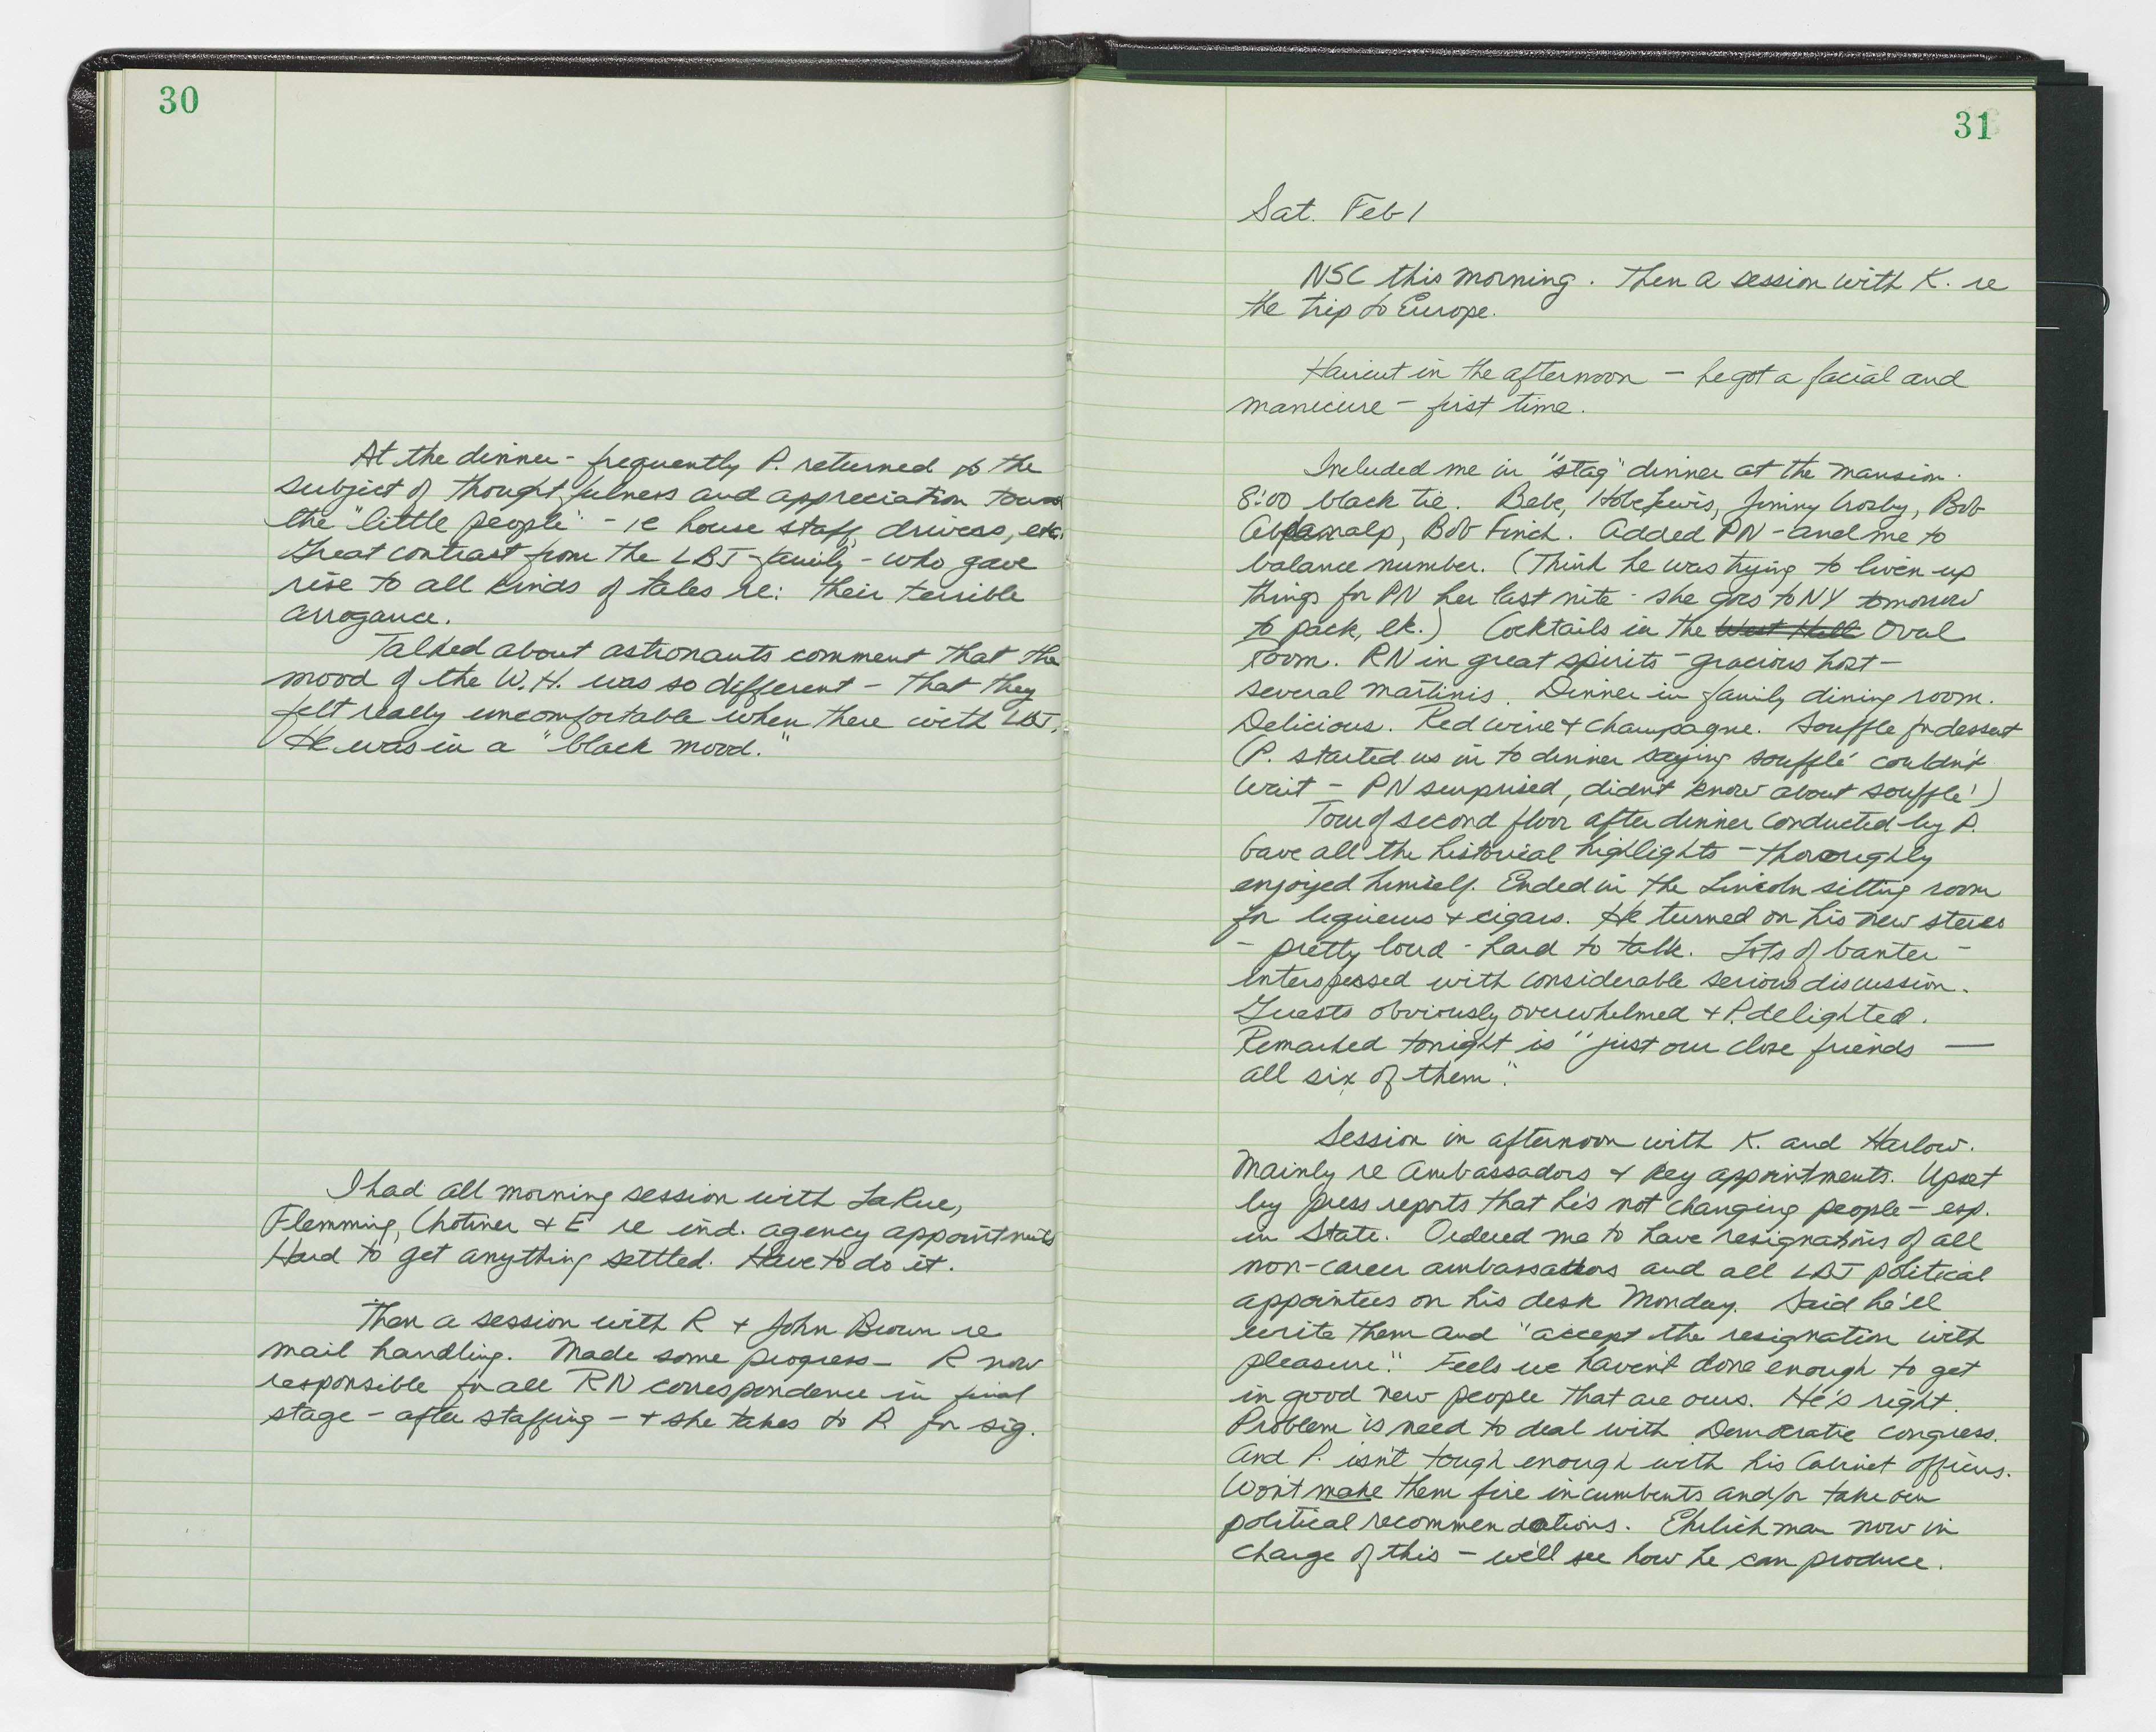 30
At the dinner - frequently P. returned to the
subject of thoughtfulness and appreciation toward
the "little people" - ie house staff, drivers, etc.
Great contrast from the LBJ family - who gave
rise to all kinds of tales re: their terrible
arrogance.
Talked about astronauts comment that the
mood of the W.H. was so different - that they
felt really uncomfortable when there with LBJ.
He was in a "black mood."
I had all morning session with LaRue,
Flemming, Chotiner & E re ind. agency appointments
Hard to get anything settled. Have to do it.
Then a session with R + John Brown re
mail handling. Made some progress - R now
responsible for all RN correspondence in final
stage - after staffing - + she takes to P. for sig.
31
Sat. Feb 1
NSC this morning. Then a session with K. re
the trip to Europe.
Haircut in the afternoon - he got a facial and
manicure - first time.
Included me in "stag" dinner at the mansion.
8:00 black tie. Bebe, Hobe Lewis, Jimmy Crosby, Bob
Abplanalp, Bob Finch. Added PN - and me to
balance number. (Think he was trying to liven up
things for PN her last nite - she goes to NY tomorrow
to pack, etc.) Cocktails in the West Hall Oval
room. RN in great spirits - gracious host -
several martinis. Dinner in family dining room.
Delicious. Red wine & champagne. Souffle for dessert
(P. started us in to dinner saying soufflé couldn't
wait - PN surprised, didnt know about soufflé!)
Tour of second floor after dinner conducted by P.
Gave all the historical highlights - thoroughly
enjoyed himself. Ended in the Lincoln sitting room
for liqueurs + cigars. He turned on his new stereo
- pretty loud - hard to talk. Lots of banter -
interspersed with considerable serious discussion.
Guests obviously overwhelmed + P. delighted.
Remarked tonight is "just our close friends —
all six of them".
Session in afternoon with K. and Harlow.
Mainly re Ambassadors & key appointments. Upset
by press reports that he's not changing people - esp.
in State. Ordered me to have resignations of all
non-career ambassadors and all LBJ political
appointees on his desk Monday. Said he'll
write them and "accept the resignation with
pleasure". Feels we haven't done enough to get
in good new people that are ours. He's right.
Problem is need to deal with Democratic Congress.
And P. isn't tough enough with his Cabinet officers.
Won't make them fire incumbents and/or take our
political recommendations. Ehrlichman now in
charge of this - we'll see how he can produce.